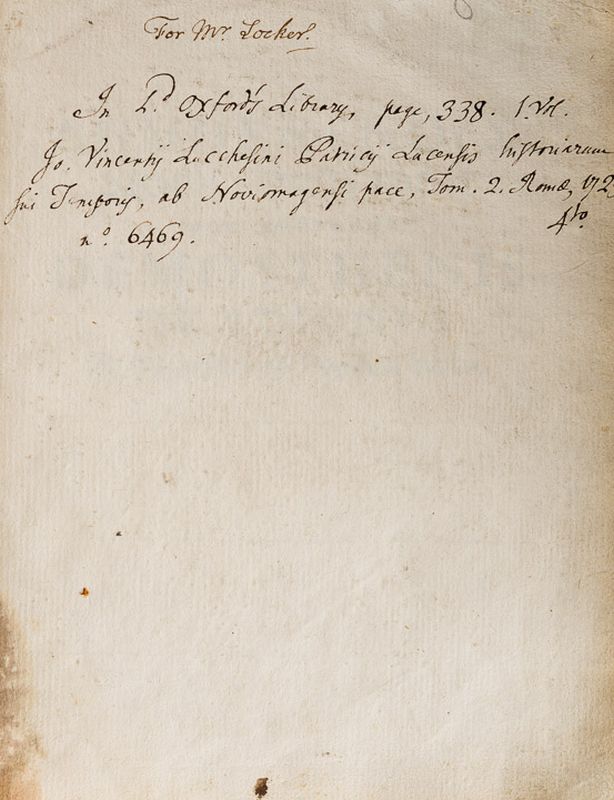 For Mr. Locker.
In Ld. Oxford's Library, page, 338. 1. Vol.
Jo. Vincentij Lucchesini Patricij Lucensis historiarum
sui Temporis, ab Noviomagensi pace, Tom. 2. Romæ, 172
4to.
no. 6469.